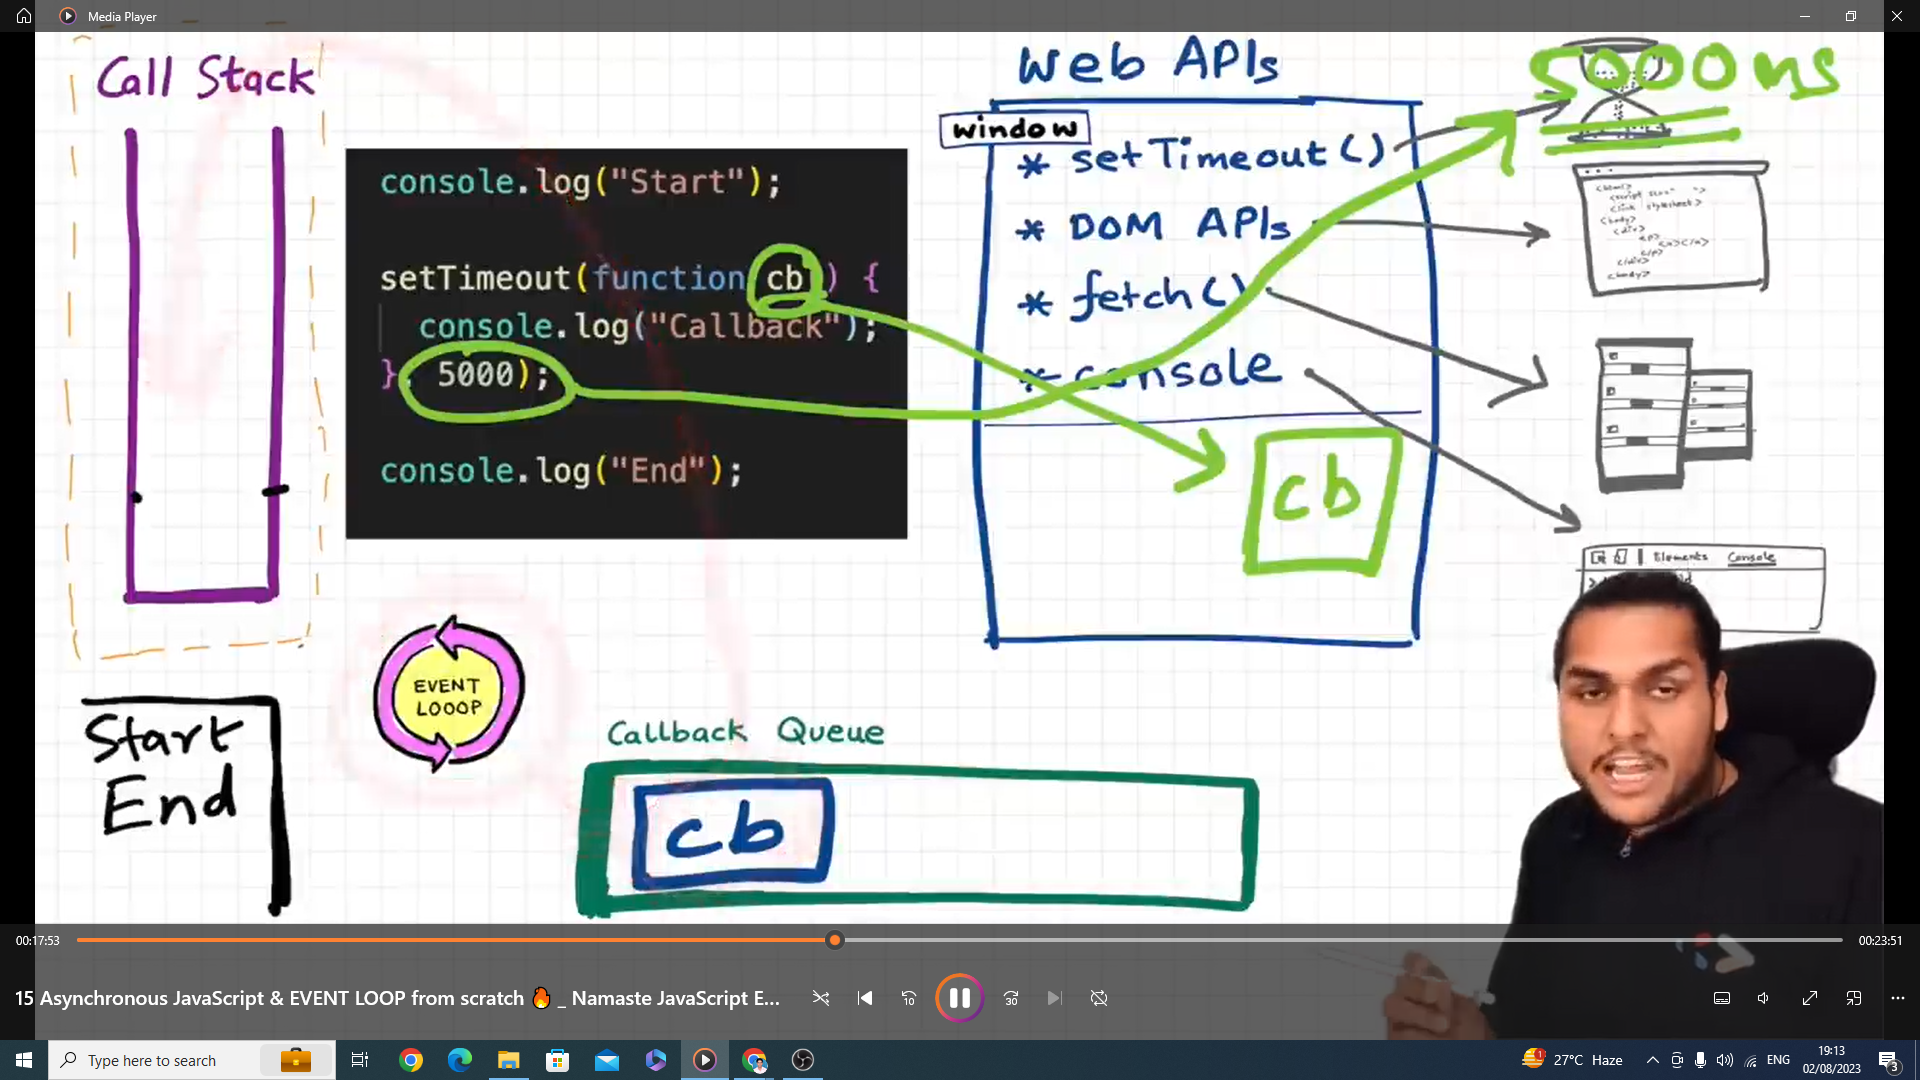 Media Player
Call Stack
console.log("Start");
setTimeout(function cb() {
console.log("Callback");
}, 5000);
console.log("End");
Web APIs
window
* setTimeout()
* DOM APIs
* fetch()
* console
cb
5000 ms
Elements Console
Start
End
EVENT
LOOOP
Callback Queue
cb
00:17:53
00:23:51
15 Asynchronous JavaScript & EVENT LOOP from scratch 🔥 _ Namaste JavaScript E...
10
30
Type here to search
1
27°C Haze
ENG
19:13
02/08/2023
3